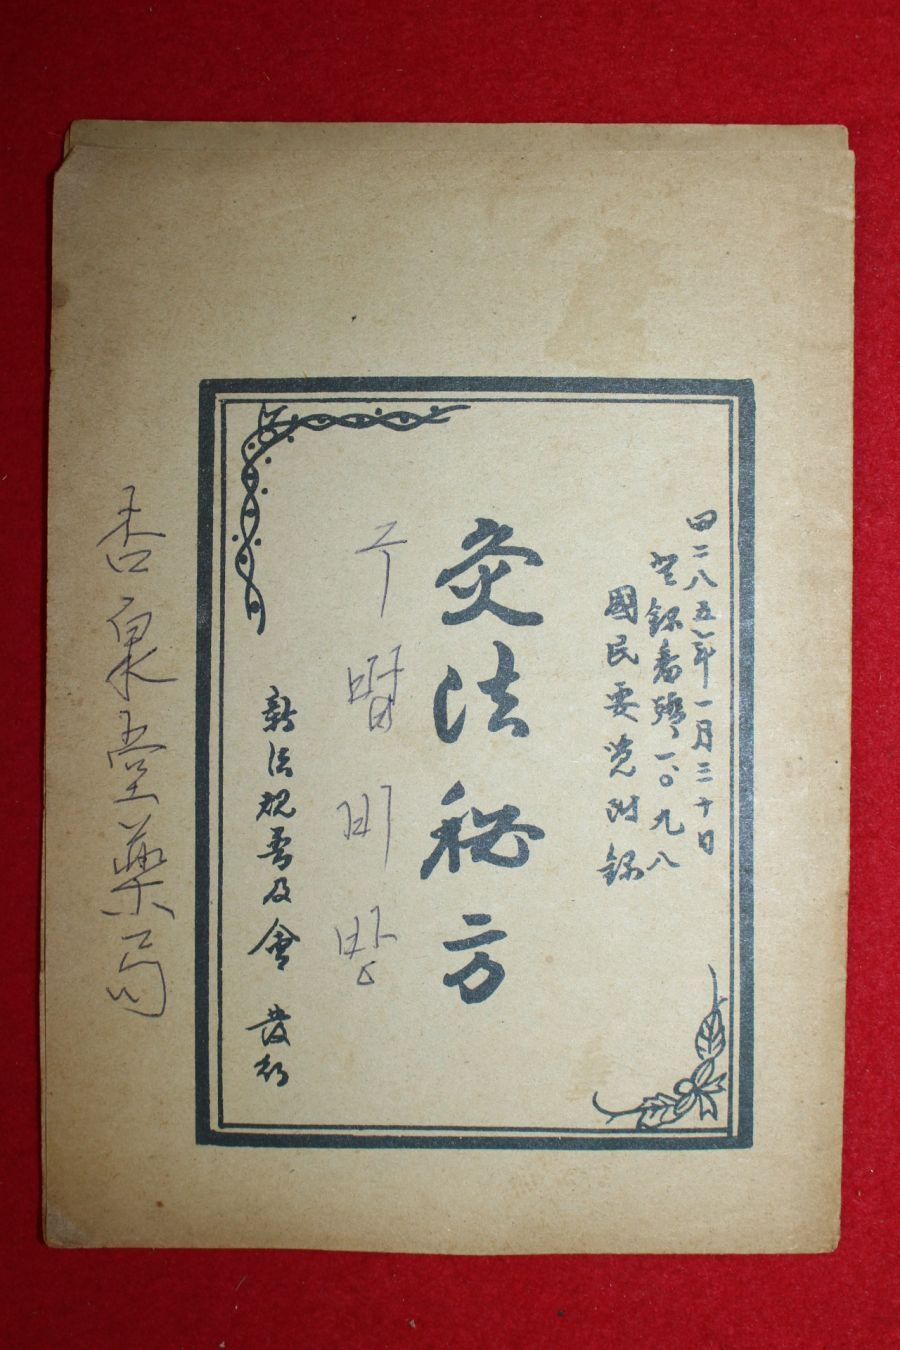 四二八五年一月三十日
登錄番號 一〇九八
國民要覽附錄
灸法秘方
구 법 비 방
新法規普及會 發行
杏泉堂藥局